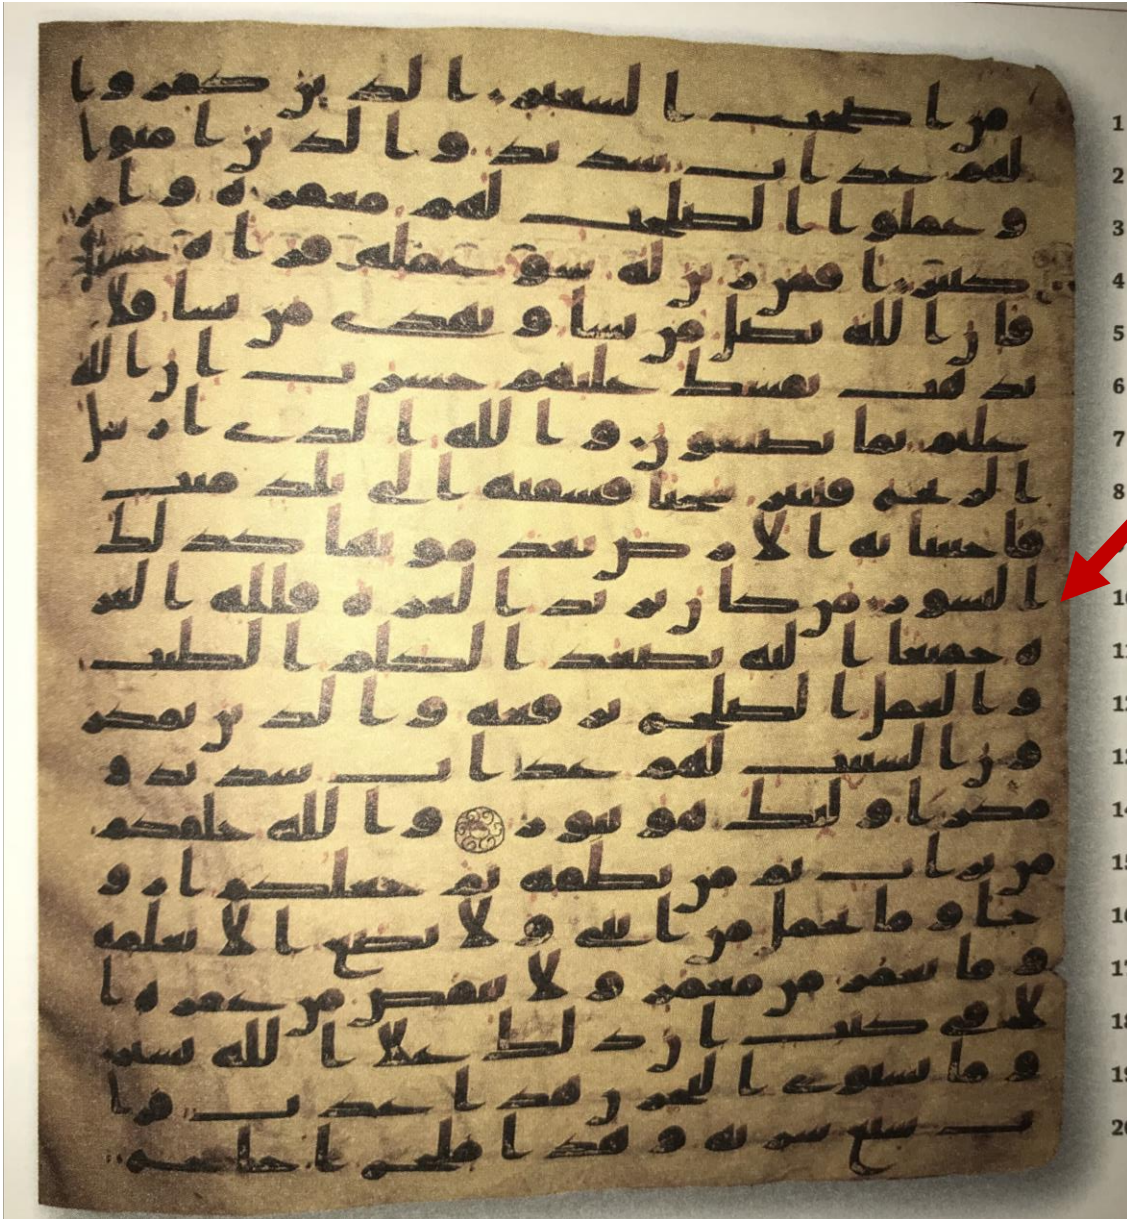 من اصحب السعير الذين كفروا 1
لهم عذاب شديد والذين امنوا 2
وعملوا الصلحت لهم مغفرة واجر 3
كبير افمن زين له سو عمله فراه حسنا 4
فان الله يضل من يشا ويهدي من يشا فلا 5
تذهب نفسك عليهم حسرت ان الله 6
عليم بما يصنعون والله الذي ارسل 7
الريح فتثير سحبا فسقنه الى بلد ميت 8
فاحيينا به الارض بعد موتها كذلك
النشور من كان يريد العزة فلله العز
ة جميعا اليه يصعد الكلم الطيب
والعمل الصلح يرفعه والذين يمكر
ون السيت لهم عذاب شديد و
مكر اوليك هو يبور والله خلقكم
من تراب ثم من نطفة ثم جعلكم ازو
جا وما تحمل من انثى ولا تضع الا بعلمه
وما يعمر من معمر ولا ينقص من عمره ا
لا في كتب ان ذلك علا الله يسير
وما يستوي البحرن هذا عذب فرا
ت سيغ شربه وهذا ملح اجاج